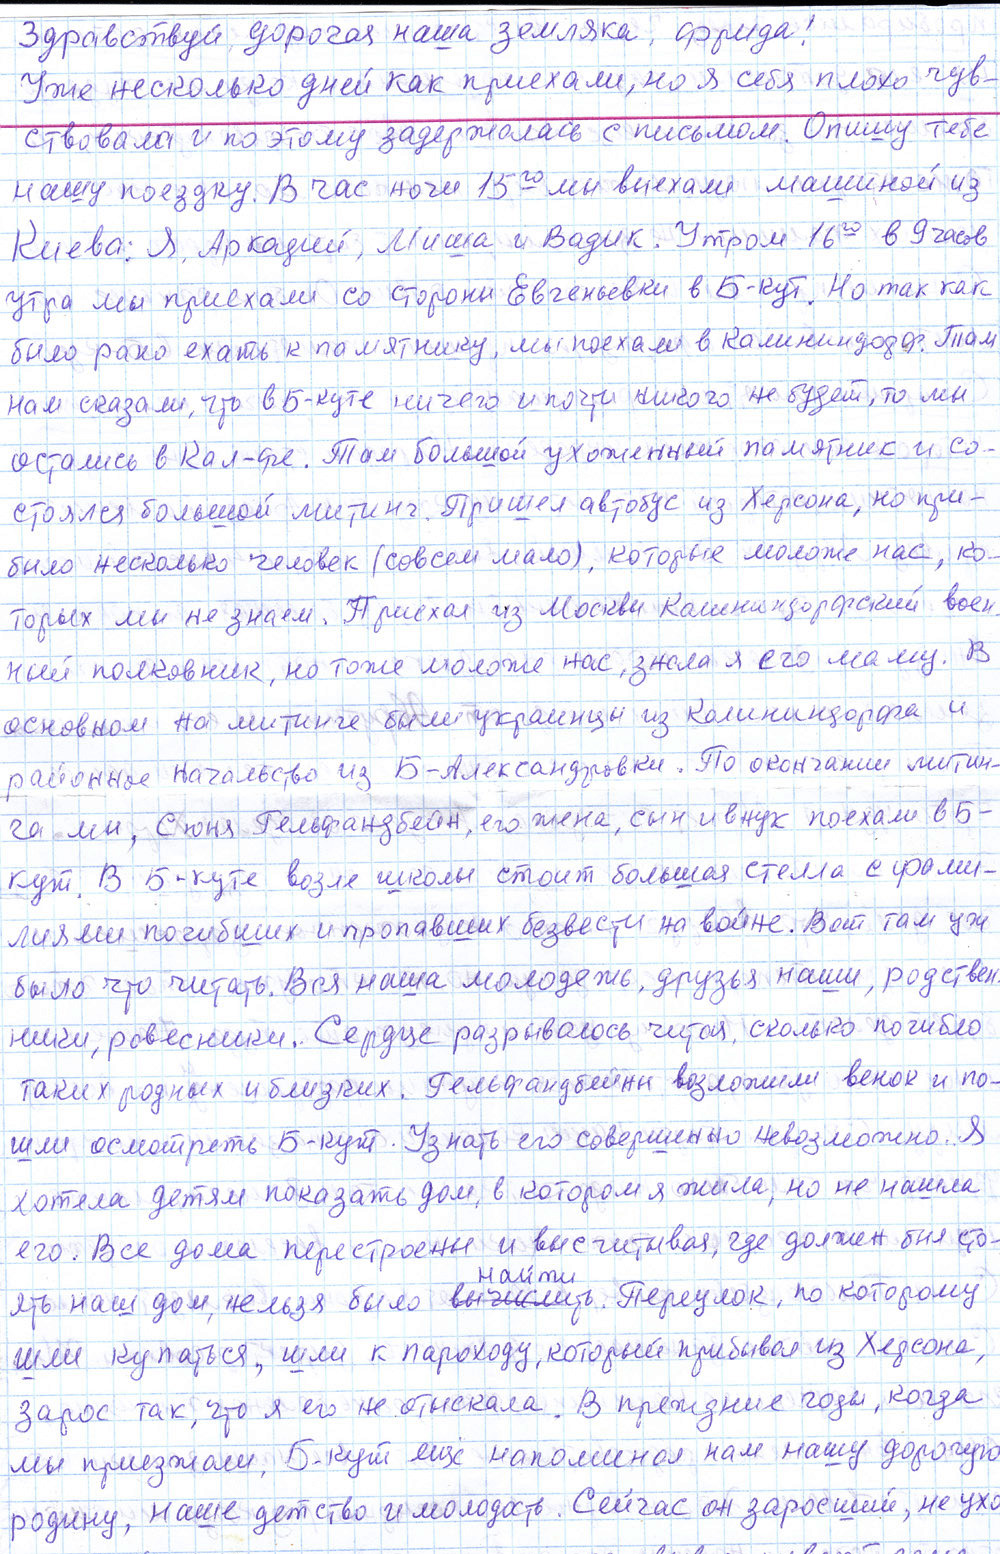 Здравствуй, дорогая наша земляка, Фрида!
Уже несколько дней как приехали, но я себя плохо чув-
ствовала и по этому задержалась с письмом. Опишу тебе
нашу поездку. В час ночи 15го мы выехали машиной из
Киева: Я, Аркадий, Миша и Вадик. Утром 16го в 9 часов
утра мы приехали со стороны Евгеньевки в Б-кут. Но так как
было рано ехать к памятнику, мы поехали в Калининдорф. Там
нам сказали, что в Б-куте ничего и почти никого не будет, то мы
остались в Кал-фе. Там большой ухоженный памятник и со-
стоялся большой митинг. Пришел автобус из Херсона, но при-
было несколько человек (совсем мало), которые моложе нас, ко-
торых мы не знаем. Приехал из Москвы Калининдорфский воен-
ный полковник, но тоже моложе нас, знала я его маму. В
основном на митинге были украинцы из Калининдорфа и
районное начальство из Б-Александровки. По окончании митин-
га мы, Сюня Гельфандбейн, его жена, сын и внук поехали в Б-
кут. В Б-куте возле школы стоит большая стелла с фами-
лиями погибших и пропавших безвести на войне. Вот там уж
было что читать. Вся наша молодежь, друзья наши, родствен-
ники, ровесники. Сердце разрывалось читая, сколько погибло
таких родных и близких. Гельфандбейны возложили венок и по-
шли осмотреть Б-кут. Узнать его совершенно невозможно. Я
хотела детям показать дом, в котором я жила, но не нашла
его. Все дома перестроены и высчитывая, где должен был сто-
найти
ять наш дом, нельзя было вычислить. Переулок, по которому
шли купаться, шли к пароходу, который прибывал из Херсона,
зарос так, что я его не отыскала. В прежние годы, когда
мы приезжали, Б-кут ещё напоминал нам нашу дорогую
родину, наше детство и молодость. Сейчас он заросший, не ухо